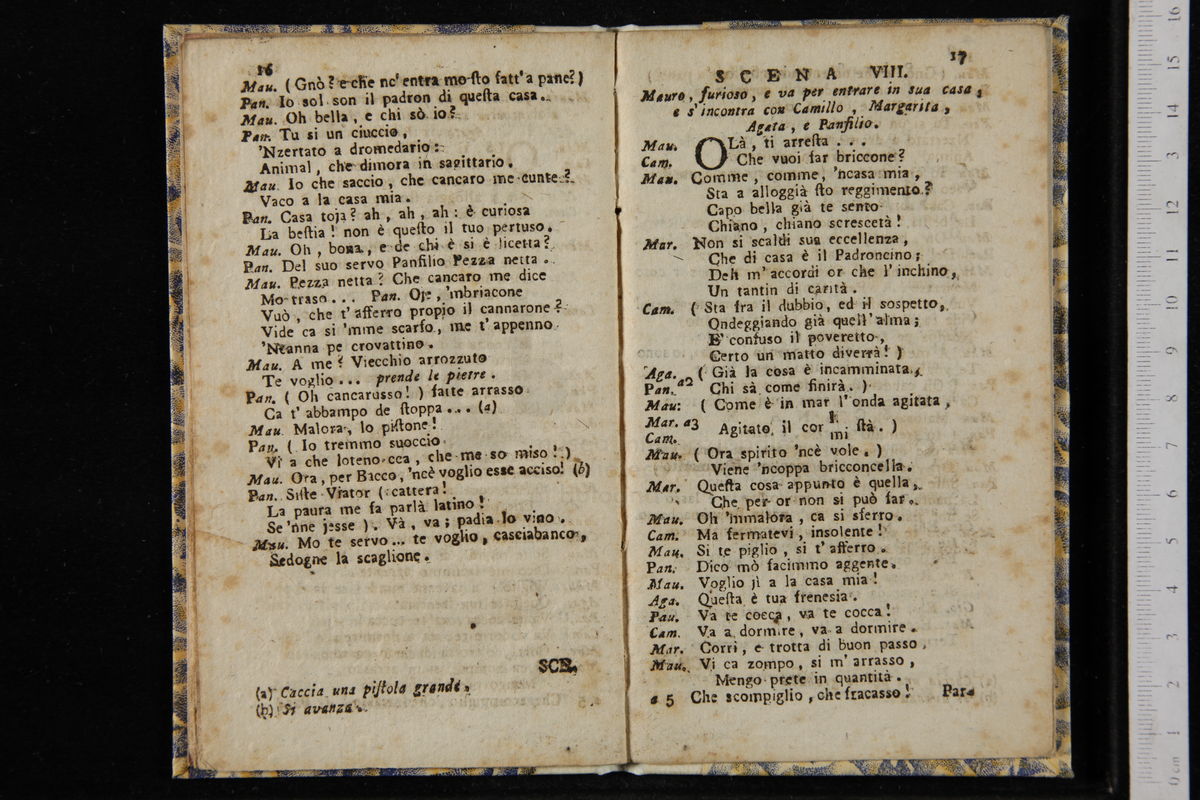 16
Mau. ( Gnò? e che nc' entra mo sto fatt' a pane? )
Pan. Io sol son il padron di questa casa.
Mau. Oh bella, e chi sò io?
Pan. Tu si un ciuccio,
'Nzertato a dromedario:
Animal, che dimora in sagittario.
Mau. Io che saccio, che cancaro me cunte?
Vaco a la casa mia.
Pan. Casa toja? ah, ah, ah: è curiosa
La bestia! non è questo il tuo pertuso.
Mau. Oh, bona, e de chi è si è licetta?
Pan. Del suo servo Panfilio Pezza netta.
Mau. Pezza netta? Che cancaro me dice
Mo traso... Pan. Oje, 'mbriacone
Vuò, che t' afferro propio il cannarone?
Vide ca si 'mme scarfo, me t' appenno
'Ncanna pe crovattino.
Mau. A me? Viecchio arrozzuto
Te voglio... prende le pietre.
Pan. ( Oh cancarusso! ) fatte arrasso
Ca t' abbampo de stoppa... (a)
Mau. Malora, lo pistone!
Pan. ( Io tremmo suoccio
Vi a che loteno cca, che me so miso! )
Mau. Ora, per Bacco, 'ncè voglio esse acciso! (b)
Pan. Siste Viator ( cattera!
La paura me fa parlà latino!
Se 'nne jesse ). Và, va; padia lo vino.
Mau. Mo te servo... te voglio, casciabanco,
Sedogne la scaglione.
SCE.
(a) Caccia una pistola grande.
(b) Si avanza.
17
SCENA VIII.
Mauro, furioso, e va per entrare in sua casa,
e s' incontra con Camillo, Margarita,
Agata, e Panfilio.
Mau. OLà, ti arresta...
Cam. Che vuoi far briccone?
Mau. Comme, comme, 'ncasa mia,
Sta a alloggià sto reggimento?
Capo bella già te sento
Chiano, chiano screscetà!
Mar. Non si scaldi sua eccellenza,
Che di casa è il Padroncino;
Deh m' accordi or che l' inchino,
Un tantin di carità.
Cam. ( Sta fra il dubbio, ed il sospetto,
Ondeggiando già quell' alma;
E' confuso il poveretto,
Certo un matto diverrà! )
Aga. ( Già la cosa è incamminata,
Pan. a2 Chi sà come finirà. )
Mau: ( Come è in mar l' onda agitata,
Mar. a3 Agitato il cor li mi stà. )
Cam.
Mau. ( Ora spirito 'ncè vole. )
Viene 'ncoppa bricconcella.
Mar. Questa cosa appunto è quella,
Che per or non si può far.
Mau. Oh 'mmalora, ca si sferro.
Cam. Ma fermatevi, insolente!
Mau. Si te piglio, si t' afferro.
Pan. Dico mò facimmo aggente.
Mau. Voglio jì a la casa mia!
Aga. Questa è tua frenesia.
Pau. Va te cocca, va te cocca!
Cam. Va a dormire, va a dormire.
Mar. Corri, e trotta di buon passo,
Mau. Vi ca zompo, si m' arrasso,
Mengo prete in quantità.
a 5 Che scompiglio, che fracasso! Par-
0 cm 1 2 3 4 5 6 7 8 9 10 11 12 13 14 15 16